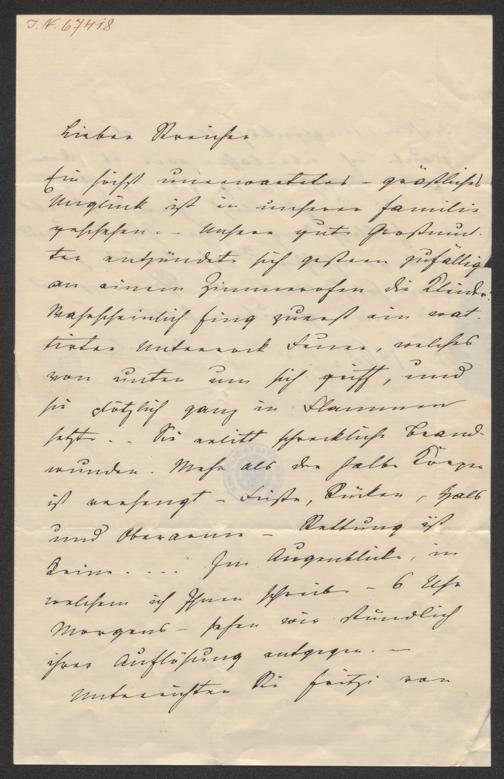 I. N. 67418
Lieber Streicher
Ein höchst unerwartetes – gräßliches
Unglück ist in unserer Familie
geschehen. – Unsere gute Großmut-
ter entzündete sich gestern zufällig
an einem Zimmerofen die Kleider.
Wahrscheinlich fing zuerst ein wat-
tirter Unterrock Feuer, welches
von unten um sich griff, und
sie plötzlich ganz in Flammen
setzte. . Sie erlitt schreckliche Brand-
wunden. Mehr als der halbe Körper
ist versengt – Füße, Rücken, Hals
und Oberarme – Rettung ist
keine. . . . Im Augenblicke, in
welchem ich Ihnen schreibe – 6 Uhr
Morgens – sehen wir stündlich
ihrer Auflösung entgegen. –
Unterrichten Sie Fritzi von